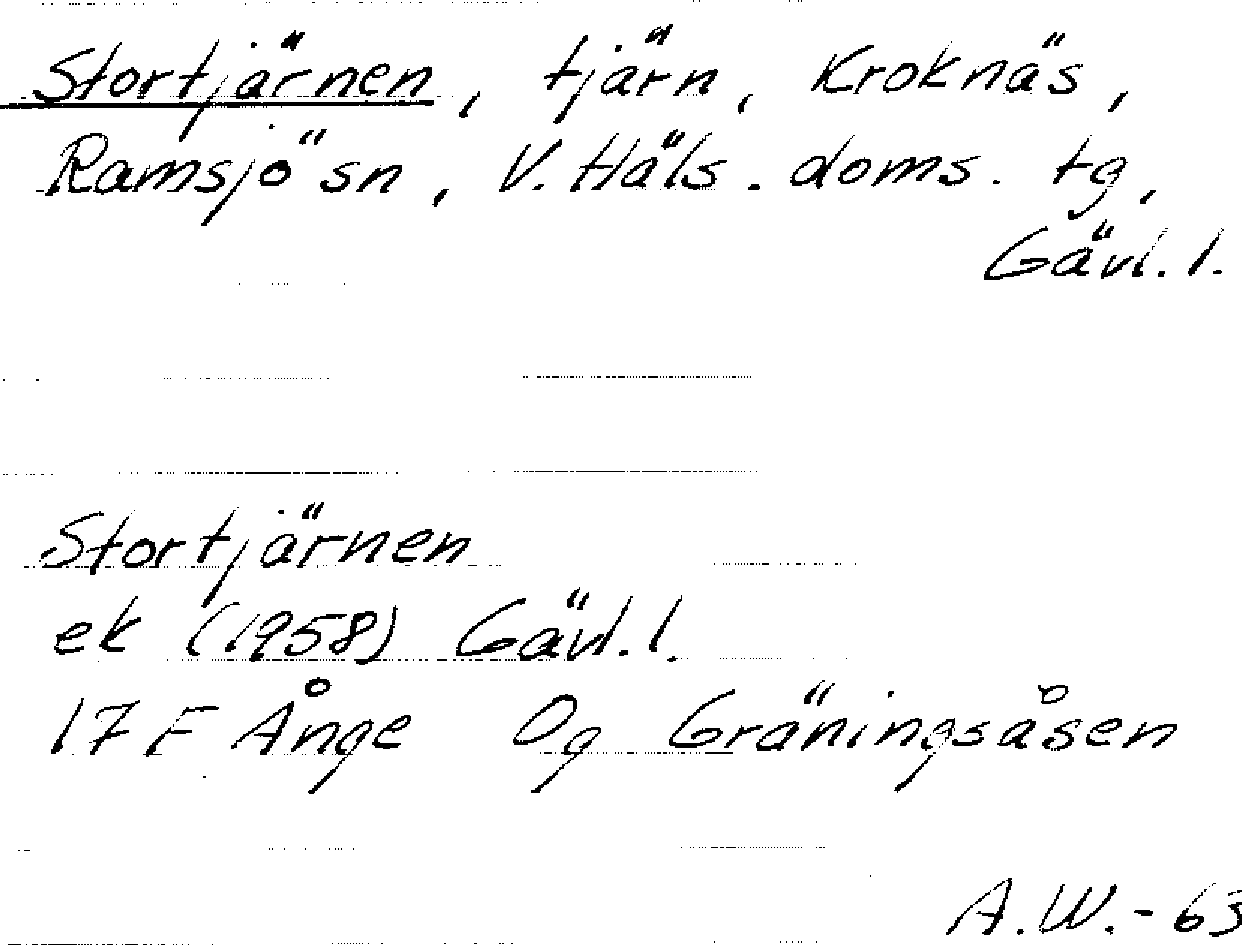 Stortjärnen, tjärn, Kroknäs,
Ramsjö sn, V. Häls. doms. tg,
Gävl. l.
Stortjärnen
ek (1958) Gävl. l.
17 F Ånge Og Gräningsåsen
A.W.-63